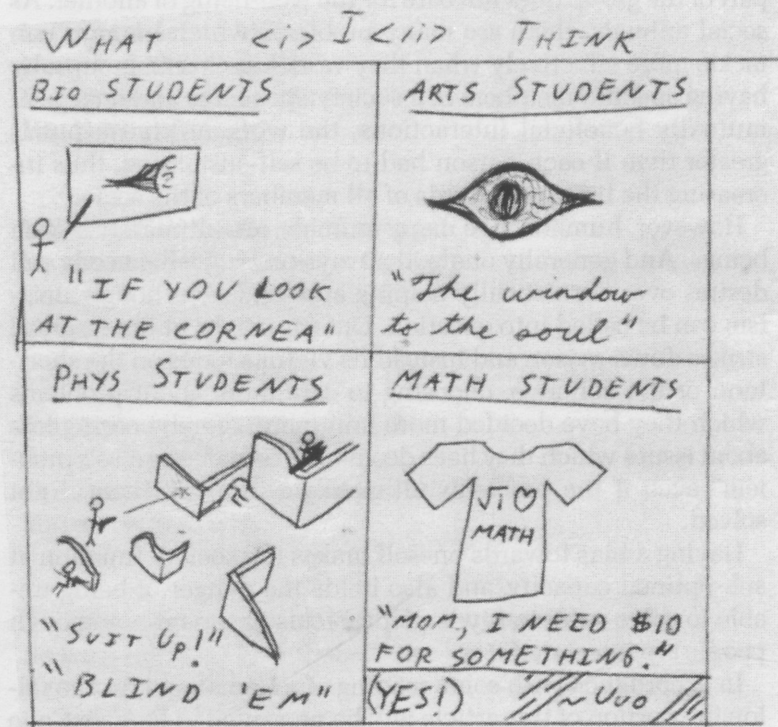 WHAT <i> I <ii> THINK
BIO STUDENTS
"IF YOU LOOK
AT THE CORNEA"
ARTS STUDENTS
"The window
to the soul"
PHYS STUDENTS
"SUIT UP!"
"BLIND 'EM"
MATH STUDENTS
√i ♡
MATH
"MOM, I NEED $10
FOR SOMETHING."
(YES!)
~Uuo